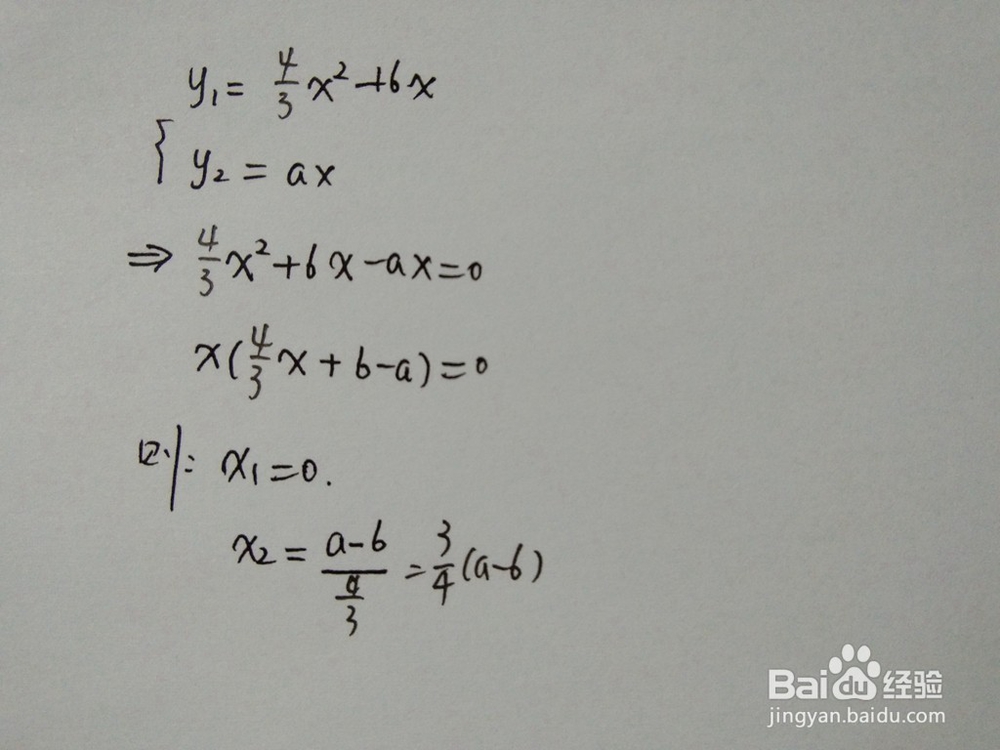 y₁ = 4/3 x² + 6x
{ y₂ = ax
⇒ 4/3 x² + 6x - ax = 0
x(4/3 x + 6 - a) = 0
则: x₁ = 0.
x₂ = (a-6)/(4/3) = 3/4 (a-6)
Baidu经验
jingyan.baidu.com